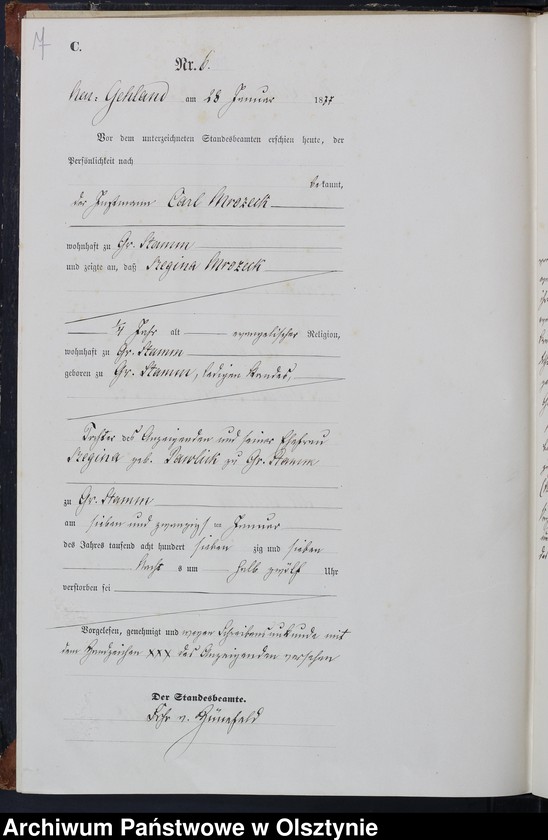 7
C.
Nr. 6.
Neu-Gehland am 28 Januar 1877
Vor dem unterzeichneten Standesbeamten erschien heute, der
Persönlichkeit nach
bekannt,
der Instmann Carl Mrozeck
wohnhaft zu Gr. Stamm
und zeigte an, daß Regina Mrozeck
1/4 Jahr alt evangelischer Religion,
wohnhaft zu Gr. Stamm
geboren zu Gr. Stamm, ledigen Standes,
Tochter des Anzeigenden und seiner Ehefrau
Regina geb. Pawlick zu Gr. Stamm
zu Gr. Stamm
am sieben und zwanzigsten Januar
des Jahres tausend acht hundert siebenzig und sieben
Nachts um halb zwölf Uhr
verstorben sei
Vorgelesen, genehmigt und wegen Schreibensunkunde mit
dem Handzeichen XXX des Anzeigenden versehen
Der Standesbeamte.
Archiwum Państwowe w Olsztynie